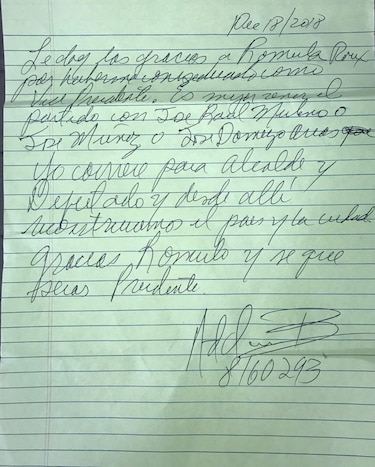 Dec 18/2018
Le doy las gracias a Romulo Roux
por haberme considerado como
Vice Presidente. Es mejor el
partido con Jose Raul Mulino o
Jose Muñoz o Jose Domingo Arias
Yo correre para Alcalde y
Diputado y desde alli
reconstruimos el pais y la ciudad.
Gracias, Romulo y se que
seras Presidente.
8160293